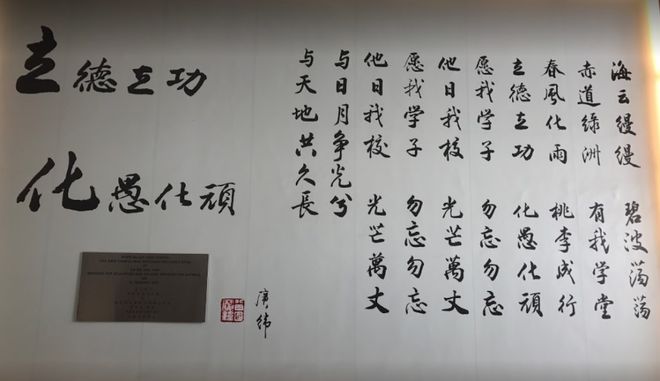 立德立功
化愚化頑
海云缦缦 碧波荡荡
赤道綠洲 有我学堂
春風化雨 桃李成行
立德立功 化愚化頑
愿我学子 勿忘勿忘
他日我校 光芒萬丈
愿我学子 勿忘勿忘
他日我校 光芒萬丈
与日月争光兮
与天地共久長